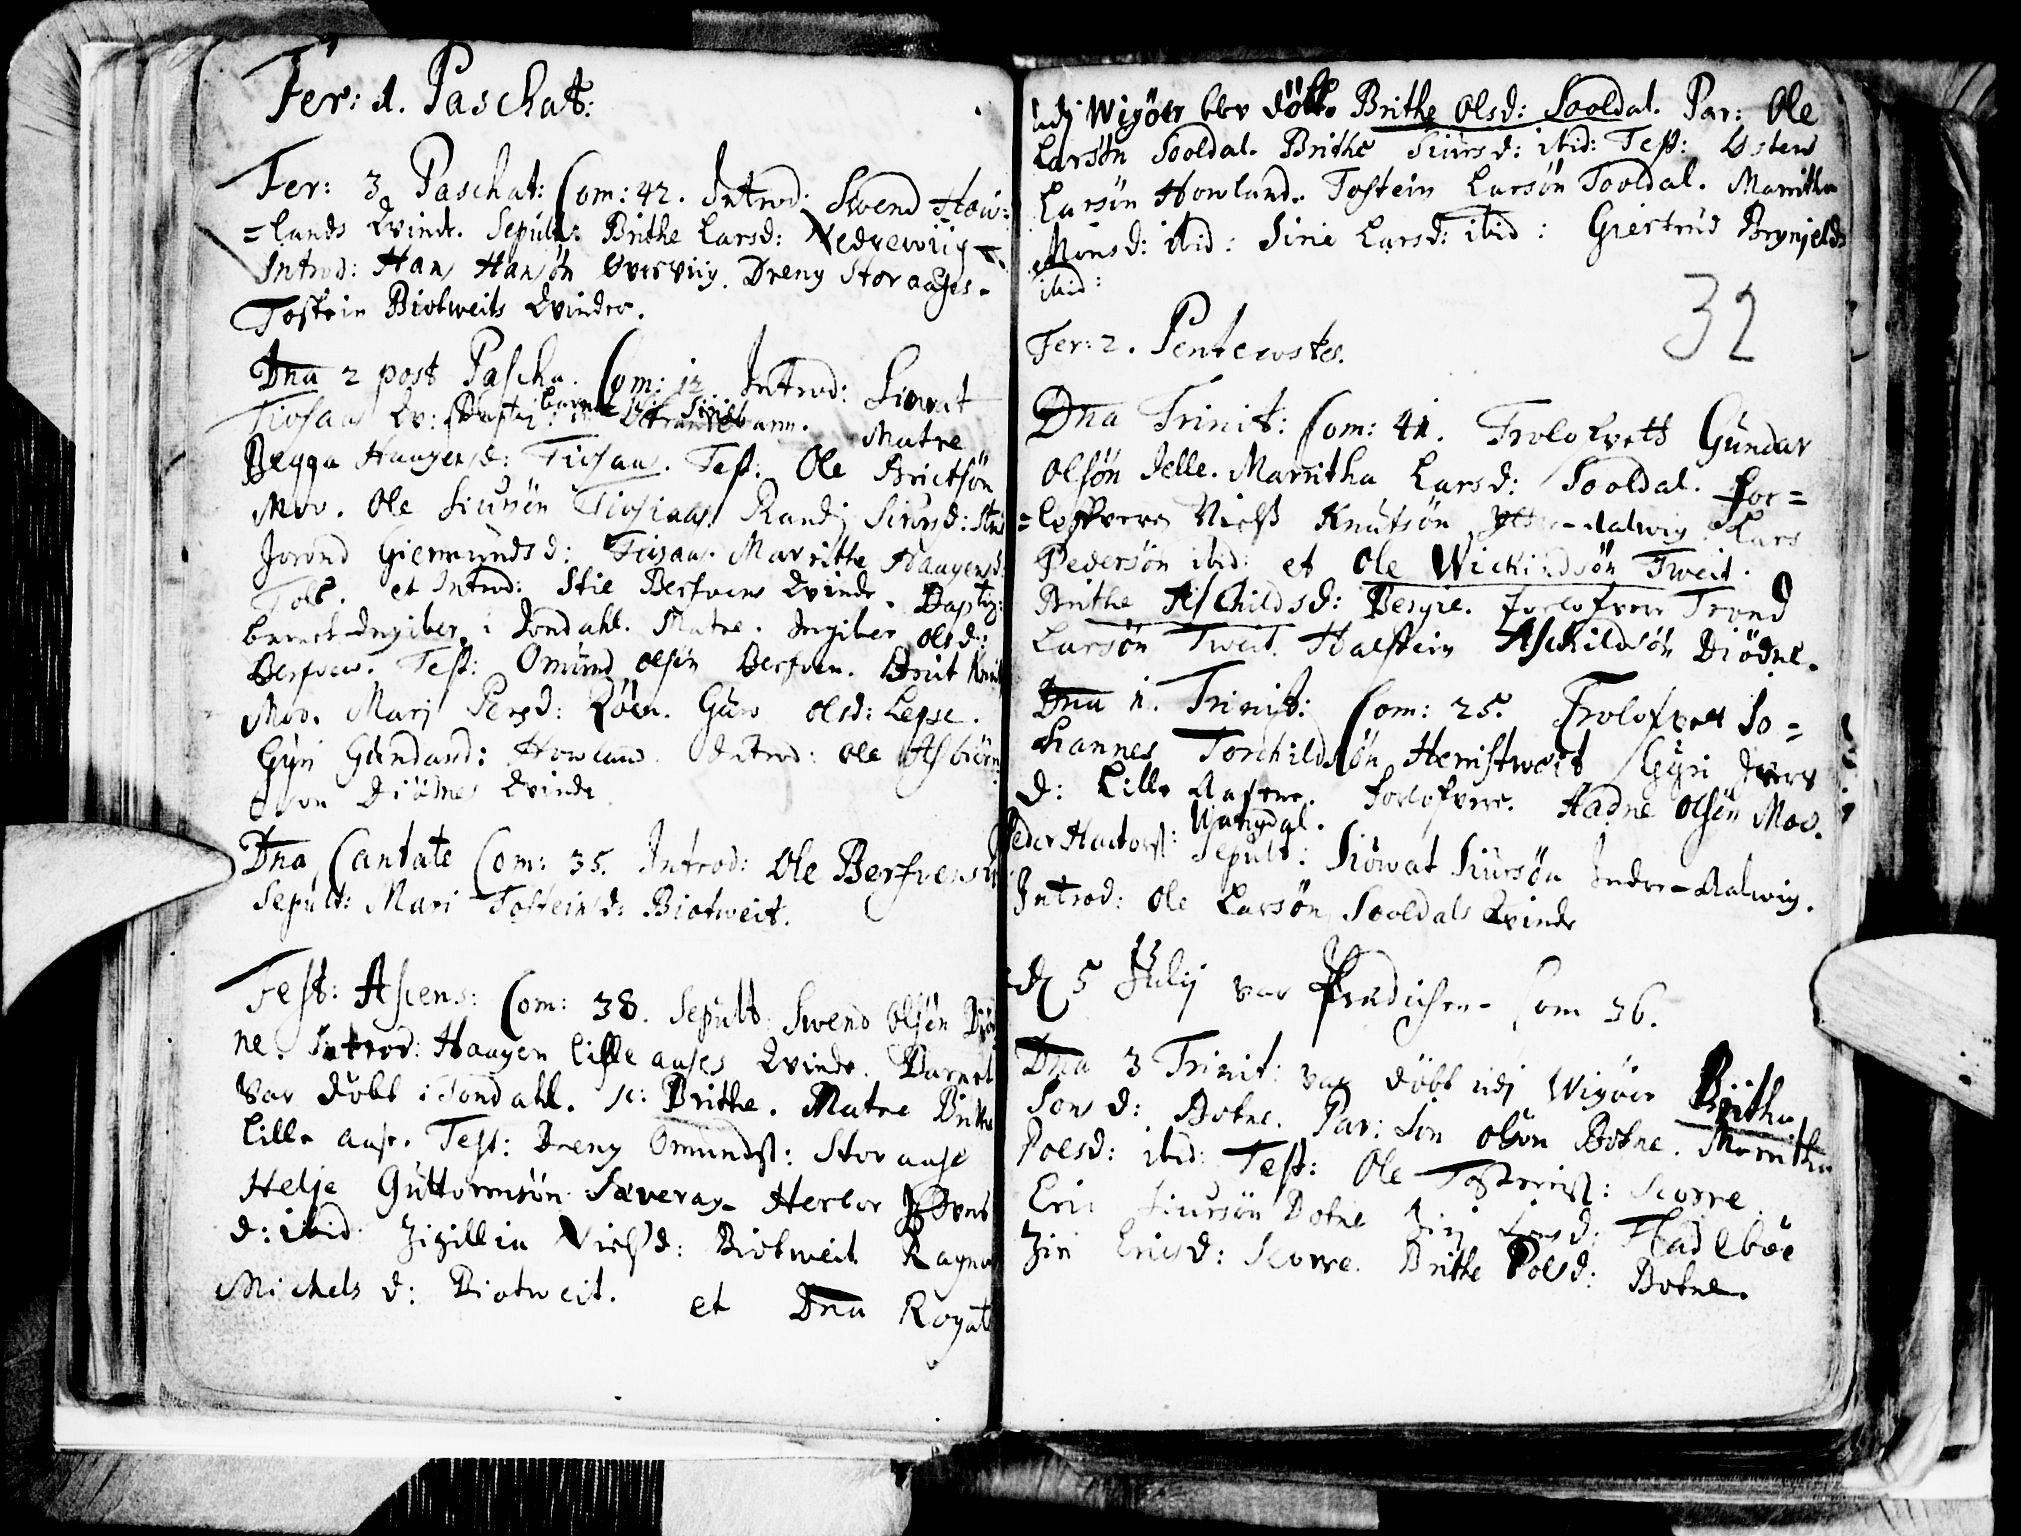 Fer: 1. Paschat:
Fer: 3 Paschat: Com: 42. Introd: Swend How=
=lands Qvinde. Sepult: Brithe Larsd: Nedrewiig
Introd: Hans Hansön Dreng Storaases
Tostein Biotweits Qvinder.
Dna 2 post Pascha. Com: 12. Introd: Siowat
Tiosaas Qv: Matre
Begga Haagensd: Tiosaas. Test: Ole Brictsön
Mov. Ole Siursön Tiosaas. Randj Siursd:
Jorond Giermundsd: Tiosaas. Marrithe Haagensd:
et Introd: Stie Berfvens Qvinde. Baptiz:
barnet Ingiber i Jondahl. Matre. Ingiber olsd:
Berfven. Test: Omund olsön Berfven. Brit
Mov. Marj Persd: Guro olsd: Lepse.
Gyri Howland. Introd: ole Asbiörn
son Diönes Qvinde
Dna Cantate Com: 35. Introd: Ole Berfvens
Sepult: Mari Tosteinsd: Biotweit.
Fest: Ascens: Com: 38. Sepult: Swend olsön Diö
ne. Introd: Haagen lille aases Qvinde. Barnet
var döbt i Jondahl. sc: Brithe. Matre Brithe
Lille aase. Test: Dreng Omundss: Stor aase
Helje Guttormsön Sæveraas Herbor
d: ibid Zizillia Nielsd: Biotweit Ragna
Michels d: Biotweit. et Dna Rogate
udj Wigöer blev döbt Brithe Olsd: Sooldal. Par: Ole
Larsön Sooldal. Brithe Siursd: ibid: Test:
Larsön Howland. Tostein Larsön Sooldal. Marritha
Monsd: ibid: Sirie Larsd: ibid: Giertrud Brynjelds
ibid:
32
Fer: 2. Pentecostes.
Dna Trinit: Com: 41. Trolofvets Gundar
Olsön Jelle. Marritha Larsd: Sooldal. For=
=lofvere Niels Knutsön Aalwiig Lars
Pedersön ibid: et Ole Wickindsön Tweit.
Brithe Aschildsd: Bergie. Forlofvere Trond
Larsön Tweit. Halstein Aschildsön Diöne.
Dna 1. Trinit: Com: 25. Trolofvet Jo=
hannes Torchildsön Herristweit Gyri Ivers
d: Lille Aasene. Forlofvere. Hadne olsön Mov.
Peder Wangdal. Sepult: Siowat Siursön Indre-Aalwiig.
Introd: Ole Larsön Sooldals Qvinde
d 5 Julij var Prædichen Com 36.
Dna 3 Trinit: var döbt udj Wigöer Britha
Jons d: Botne. Par: Jon olsön Botne. Marritha
Poesd: ibid: Test: Ole Scorre.
Eric Siursön Botne Hadlbøe
Ziri Ericsd: Scorre. Brithe Polsd: Botne.